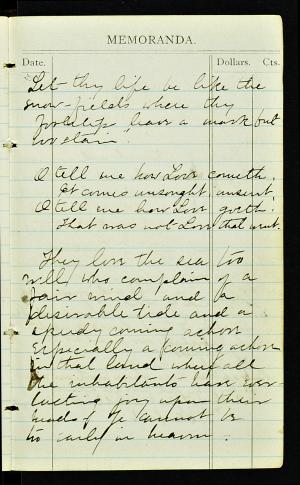 MEMORANDA.
Date. Dollars. Cts.
"Let thy life be like the
snow-fields where thy
footsteps leave a mark but
no stain".
O tell me how Love cometh.
It comes unsought, unsent.
O tell me how Love goeth!
That was not Love that went.
They love the sea too
well who complain of a
fair wind and a
desirable tide and a
speedy coming ashore
Especially a coming ashore
in that land where all
the inhabitants have ever-
lasting joy upon their
heads. Ye cannot be
too early in heaven.